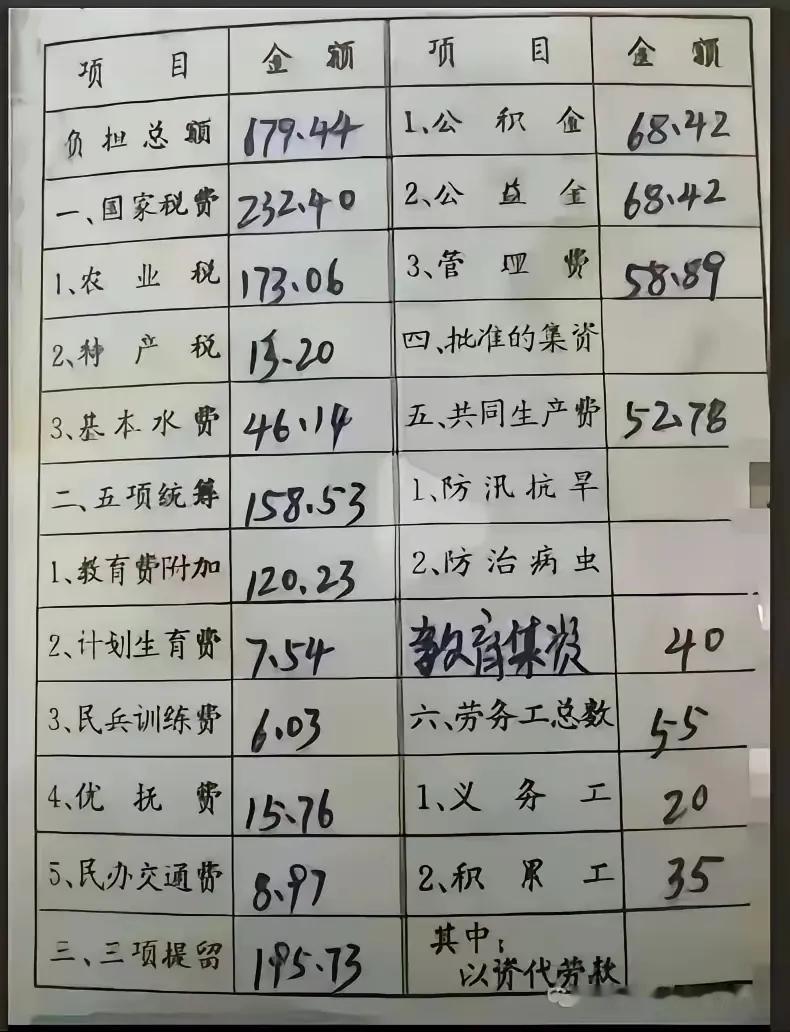 项目 金额 项目 金额
负担总额 679.44 1、公积金 68.42
一、国家税费 232.40 2、公益金 68.42
1、农业税 173.06 3、管理费 58.89
2、种产税 13.20 四、批准的集资
3、基本水费 46.14 五、共同生产费 52.78
二、五项统筹 158.53 1、防汛抗旱
1、教育费附加 120.23 2、防治病虫
2、计划生育费 7.54 教育集资 40
3、民兵训练费 6.03 六、劳务工总数 55
4、优抚费 15.76 1、义务工 20
5、民办交通费 8.97 2、积累工 35
三、三项提留 195.73 其中：
以资代劳款